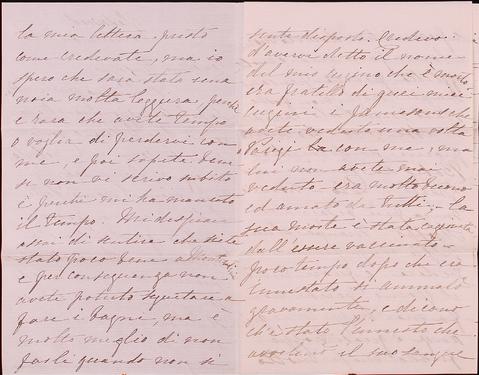 la mia lettera presto
come credevate, ma io
spero che sarà stata una
noia molto leggera perchè
è rara che avete tempo
o voglia di perdervi con
me, e poi sapete bene
se non vi scrivo subito
è perchè mi ha mancato
il tempo. Mi dispiace
assai di sentire che siete
stato poco bene a
e per conseguenza non
avete potuto seguitare a
fare i bagni, ma è
molto meglio di non
farli quando non si
sente disposto. Credevo
d'avervi detto il nome
del mio cugino che è morto
era fratello di quei miei
cugini i che
avete veduto una volta
a Parigi con me, ma
lui non avete mai
veduto era molto buono
ed amato da tutti. La
sua morte è stata
dall'essere vaccinato
poco tempo dopo che era
innestato si ammalò
gravemente, e dicono
ch'è stato l'innesto che
il suo sangue